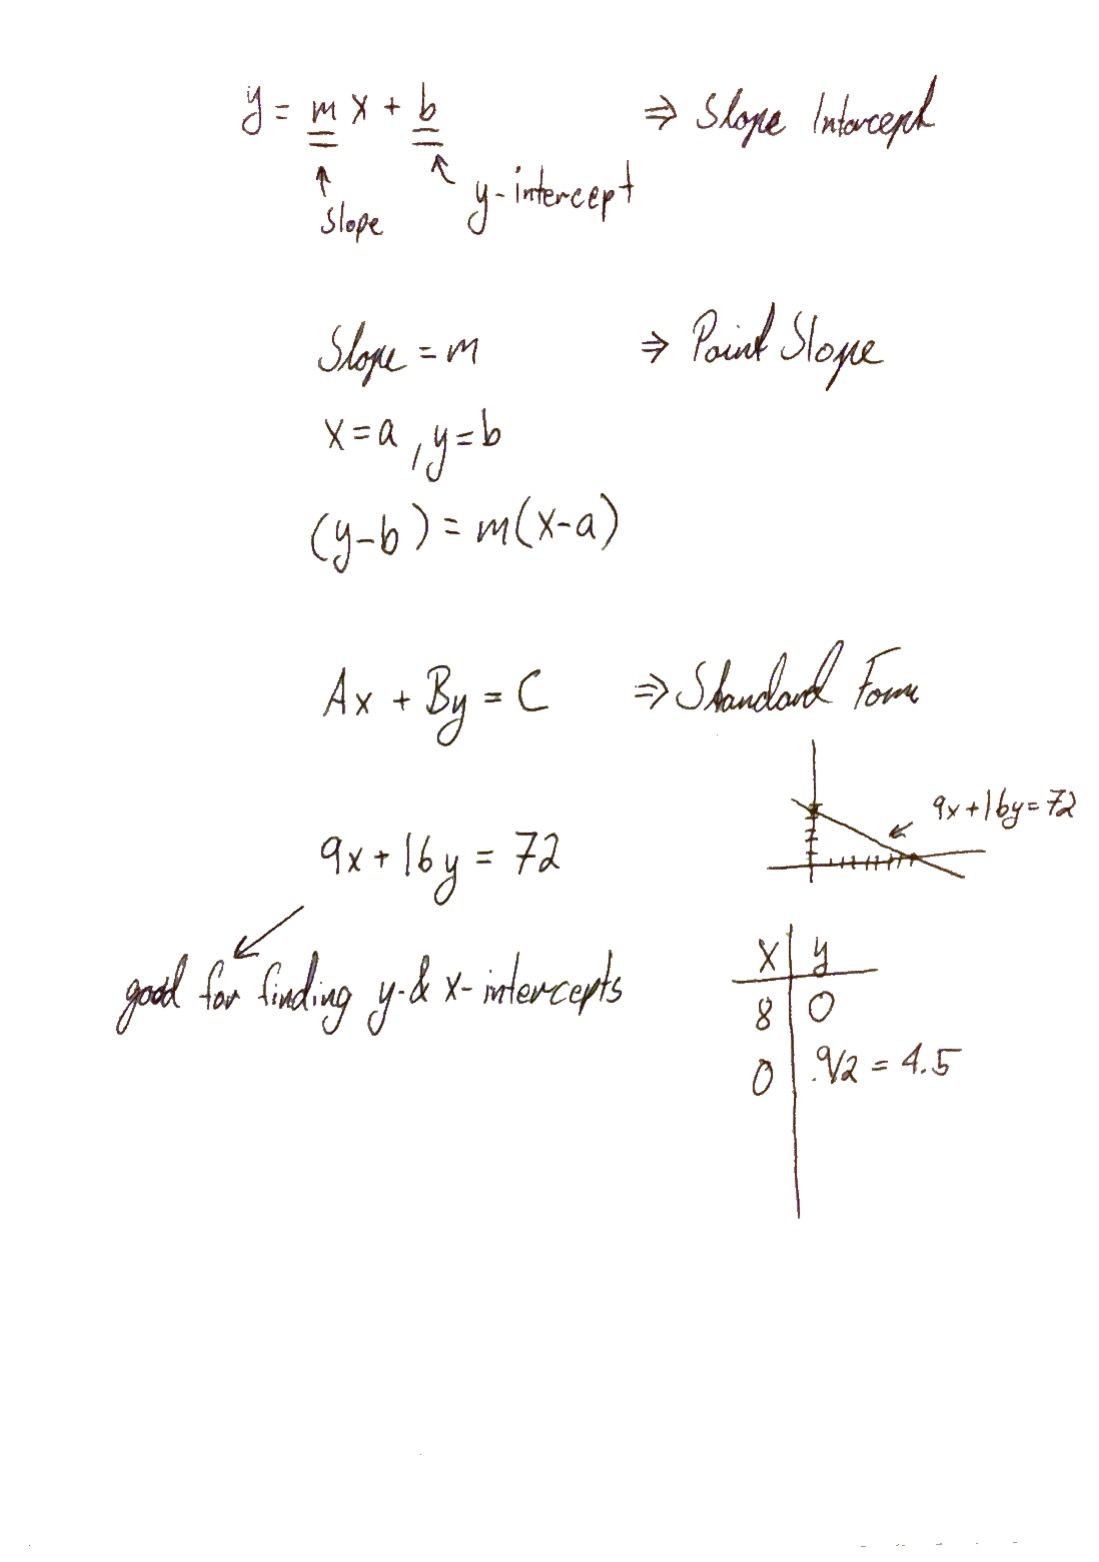 y = m x + b ⇒ Slope Intercept
↑ slope ↖ y-intercept
Slope = m ⇒ Point Slope
x = a , y = b
(y-b) = m(x-a)
Ax + By = C ⇒ Standard Form
9x + 16y = 72
9x + 16y = 72
good for finding y- & x-intercepts
x y
8 0
0 9/2 = 4.5